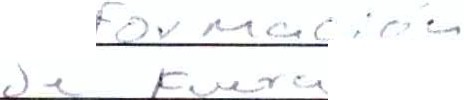 Formación
de Fuera